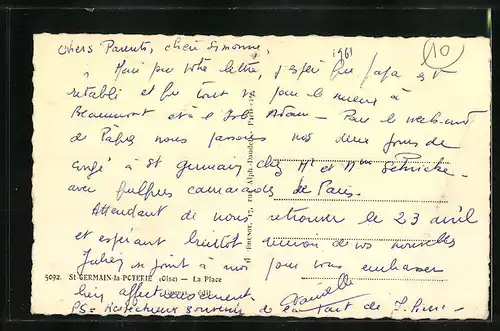 chers Parents, chère Simonne,
1961
10
Merci pour votre lettre, j'espère que papa est
rétabli et que tout va pour le mieux à
Beaumont et à l'Isle Adam - Pour le weekend
de Pâques nous passons nos deux jours de
congé à St germain chez Mr et Mme
avec quelques camarades de Paris.
Attendant de nous retrouver le 23 avril
et espérant bientôt de vos nouvelles
5092. St-GERMAIN-la-POTERIE (Oise) — La Place
se joint à moi pour vous embrasser
bien affectueusement. Danielle
PS = souvenir de la part de